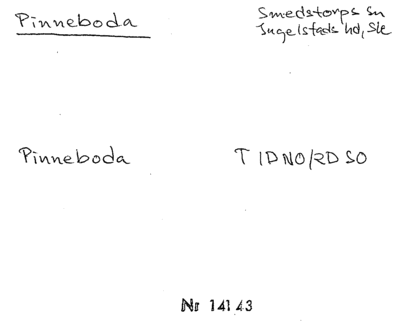 Pinneboda
Smedstorps sn
Ingelstads hd, Ske
Pinneboda T 1D NO/2D SO
Nr 14143